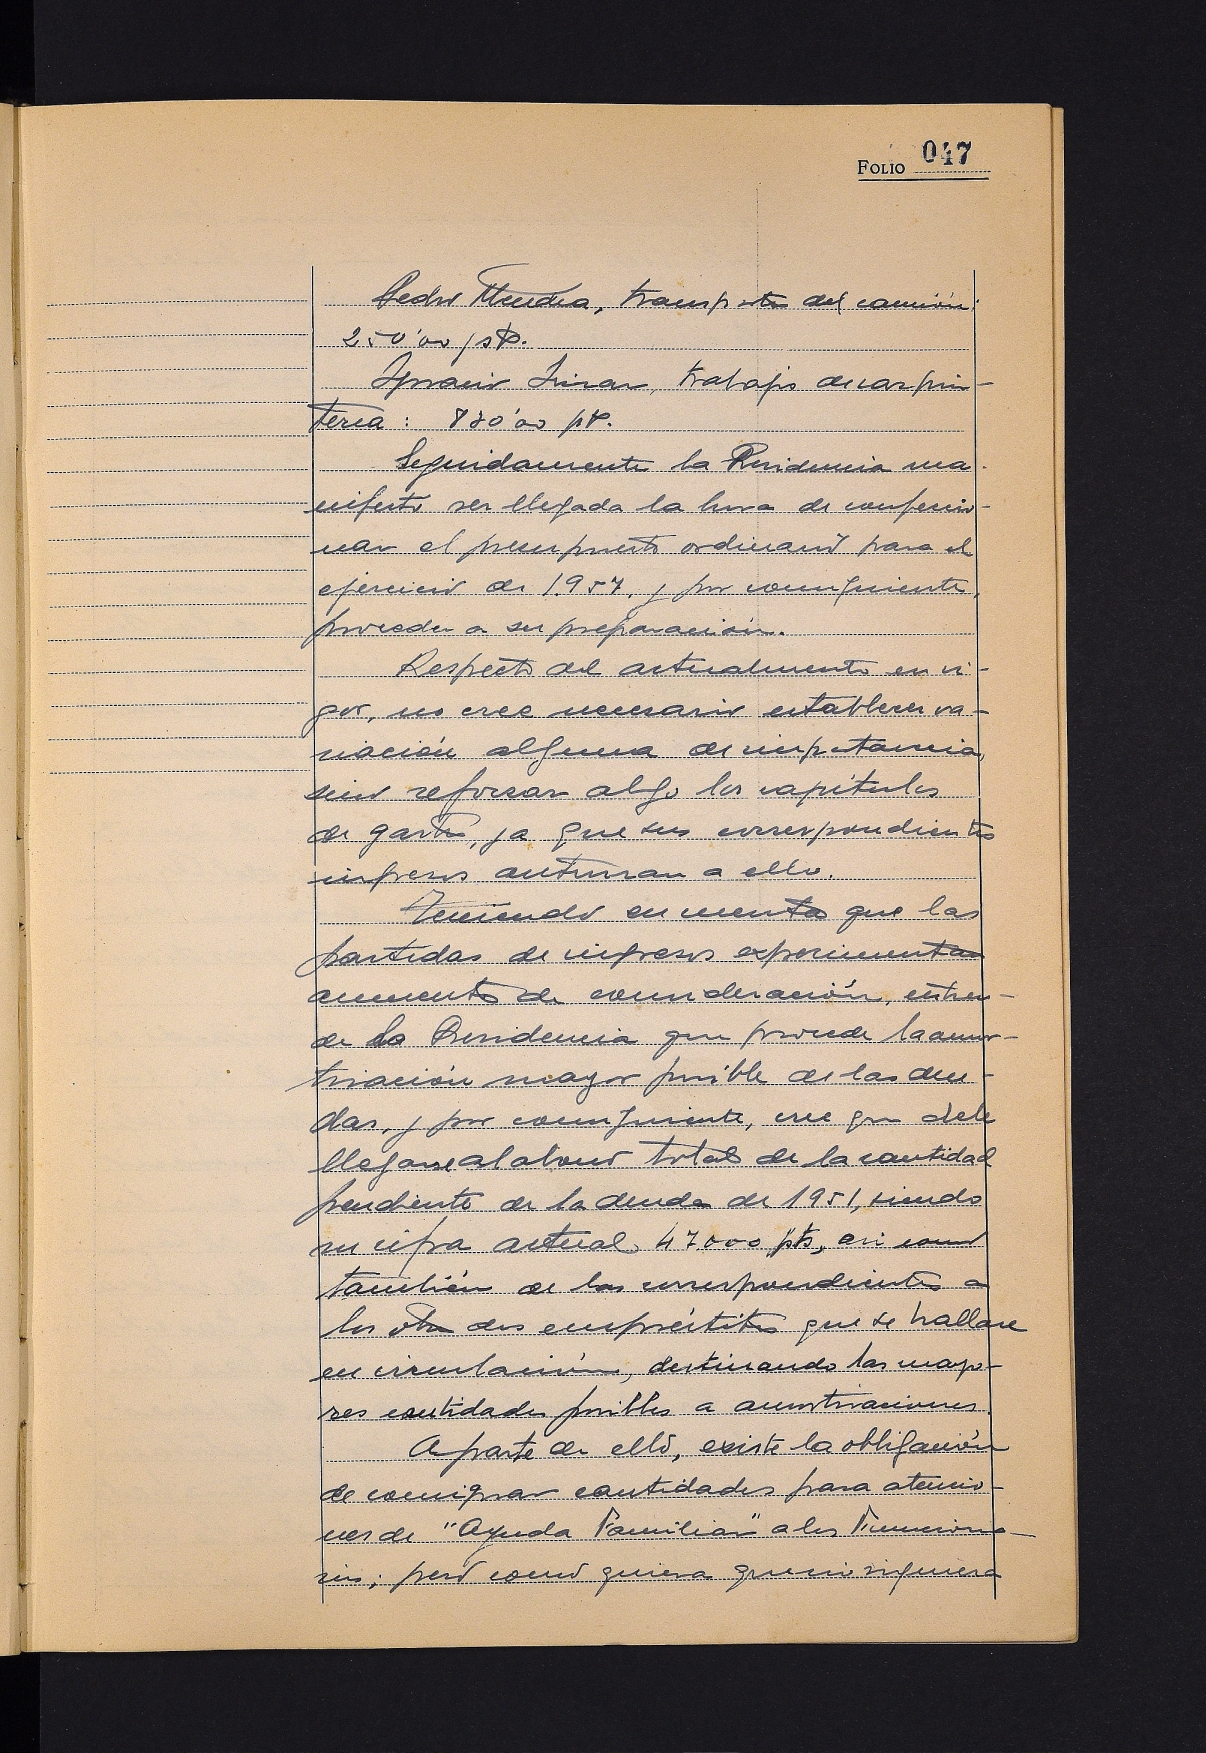 FOLIO 047
Pedro Mendia, transporte del camión:
250'00 pts.
Ignacio Linan, trabajos de carpin-
tería: 830'00 pts.
Seguidamente la Presidencia ma-
nifestó ser llegada la hora de confeccio-
nar el presupuesto ordinario para el
ejercicio de 1.957, y por consiguiente,
proceder a su preparación.
Respecto del actualmente en vi-
gor, no cree necesario establecer va-
riación alguna de importancia,
sino reforzar algo los capítulos
de gastos, ya que sus correspondientes
ingresos autorizan a ello.
Teniendo en cuenta que las
partidas de ingresos experimentan
aumento de consideración, entien-
de la Presidencia que procede la amor-
tización mayor posible de las deu-
das, y por consiguiente, cree que debe
llegarse al abono total de la cantidad
pendiente de la deuda de 1951, siendo
su cifra actual 47000 pts, asi como
también de las correspondientes a
los otros dos empréstitos que se hallan
en circulación, destinando las mayo-
res cantidades posibles a amortizaciones.
Aparte de ello, existe la obligación
de consignar cantidades para atencio-
nes de "Ayuda Familiar" a los Funciona-
rios; pero como quiera que ni siquiera